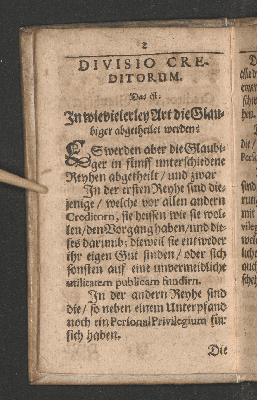 2
DIVISIO CRE-
DITORUM.
Das ist:
In wievielerley Art die Glau-
biger abgetheilet werden:
ES werden aber die Glaubi-
ger in fünff unterschiedene
Reyhen abgetheilt / und zwar
In der ersten Reyhe sind die-
jenige / welche vor allen andern
Creditorn, sie heissen wie sie wol-
len / den Vorgang haben / und die-
ses darumb; dieweil sie entweder
ihr eigen Gut finden / oder sich
sonsten auf eine unvermeidliche
utilitatem publicam fundirn.
In der andern Reyhe sind
die / so neben einem Unterpfand
noch ein Personal Privilegium für
sich haben.
Die